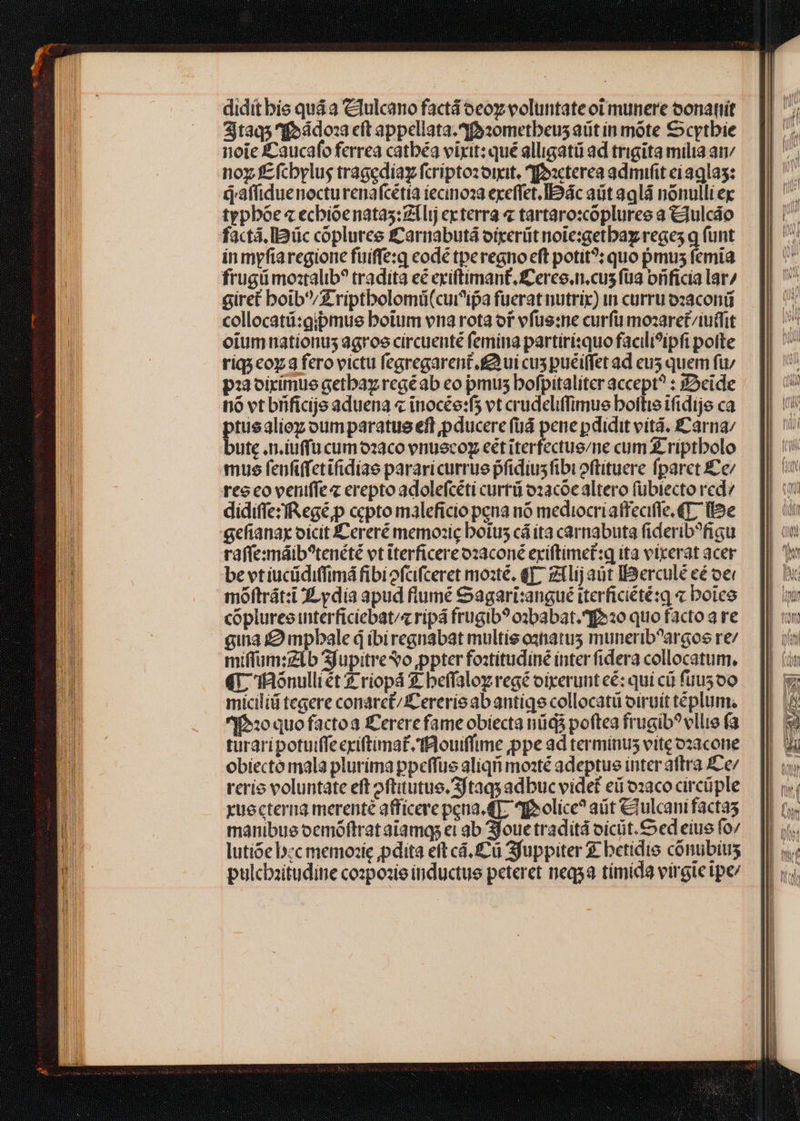 didit his quā a Vulcano factā deoꝝ voluntate oī munere donatāt
Itaqꝫ Pādora est appellata. Prometheus aūt in mōte Scythie
noīe Caucaso ferrea cathēa vixit: quē alligatū ad trigīta milia an⸗
noꝝ Eschylus tragediaꝝ scriptor dixit. Preterea admisit ei aqlaꝫ:
q̄ assidue noctu renascētia iecinora exesset. Hāc aūt aqlā nōnulli ex
typhōe ⁊ echiōe nataꝫ: Alij ex terra ⁊ tartaro: cōplures a Vulcāo
factā. Hūc cōplures Carnabutā dixerūt noīe: gethaꝝ reges q sunt
in mysia regione fuisse: q eodē tpe regno est potitꝰ: quo pmuꝫ semīa
frugū mortalibꝰ tradita eē existimant̃. Ceres.n. cuꝫ sua bn̄ficia lar⸗
giret̃ hoībꝰ/Triptholomū (cuiꝰ ip̄a fuerat nutrix) in curru draconū
collocatū: q p̄mus hoīum vna rota dr̃ vsus: ne cursu moraret̃/iussit
oīum nationuꝫ agros circuentē semina partiri: quo faciliꝰ ipsi poste
riqꝫ eoꝝ a fero victu segregarent̃. Qui cuꝫ puēisset ad euꝫ quem su⸗
pra diximus gethaꝝ regē ab eo p̄muꝫ hospitaliter acceptꝰ: Deīde
nō vt bn̄ficijs aduena ⁊ īnocēs: sꝫ vt crudelissimus hostis īsidijs ca
ptus alioꝝ dum paratus est ꝓducere suā pene ꝑdidit vitā. Carna⸗
bute.n. iussu cum draco vnus eoꝝ eēt īterfectus/ne cum Triptholo
mus sensisset īsidias parari currus p̄sidiuꝫ sibi ꝯstituere sparet Ce⸗
res eo venisse ⁊ erepto adolescēti currū dracōe altero subiecto red⸗
didisse: Regē ꝓ cepto maleficio pena nō mediocri affecisse. ¶ He
gesianax dicit Cererē memorie hoīuꝫ cā ita carnabuta sideribꝰ figu
rasse: māibꝰ tenētē vt īterficere draconē existimet̃: q ita vixerat acer
be vt iucūdissimā sibi ꝯscisceret mortē. ¶ Alij aūt Herculē eē dei
mōstrāt: ī Lydia apud flumē Sagari: anguē īterficiētē: q ⁊ hoīes
cōplures interficiebat/⁊ ripā frugibꝰ orbabat. Pro quo facto a re
gina Omphale q̄ ibi regnabat multis ornatuꝫ muneribꝰ argos re⸗
missum: Ab Iupitre vo ꝓpter fortitudinē inter sidera collocatum.
¶ Nōnulli ēt Triopā Thessaloꝝ regē dixerunt eē: qui cū suuꝫ do
miciliū tegere conaret̃/Cereris ab antiqs collocatū diruit tēplum.
Pro quo facto a Cerere fame obiecta nūqꝫ postea frugibꝰ vllis sa
turari potuisse existimat̃. Nouissime ꝓpe ad terminuꝫ vite dracone
obiecto mala plurima ꝑpessus aliqn̄ mortē adeptus inter astra Ce⸗
reris voluntate est ꝯstitutus. Itaqꝫ adhuc videt̃ eū draco circūple
xus eterna merentē afficere pena. ¶ Policeꝰ aūt Vulcani factaꝫ
manibus demōstrat aīamqꝫ ei ab Ioue traditā dicūt. Sed eius so⸗
lutiōe hec memorie ꝓdita est cā. Cū Iuppiter Thetidis cōnubiuꝫ
pulchritudine corporis inductus peteret neqꝫ a timida virgīe ipe⸗